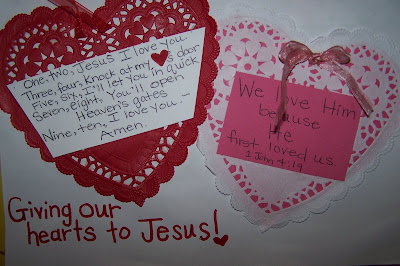 One, two, Jesus I love you
Three, four, knock at my ♥'s door
Five, Six, I'll let you in quick
Seven, eight, You'll open
Heaven's gates
Nine, ten, I love you. —
Amen.
We love Him
because
He
first loved us.
1 John 4:19
Giving our
hearts to Jesus!